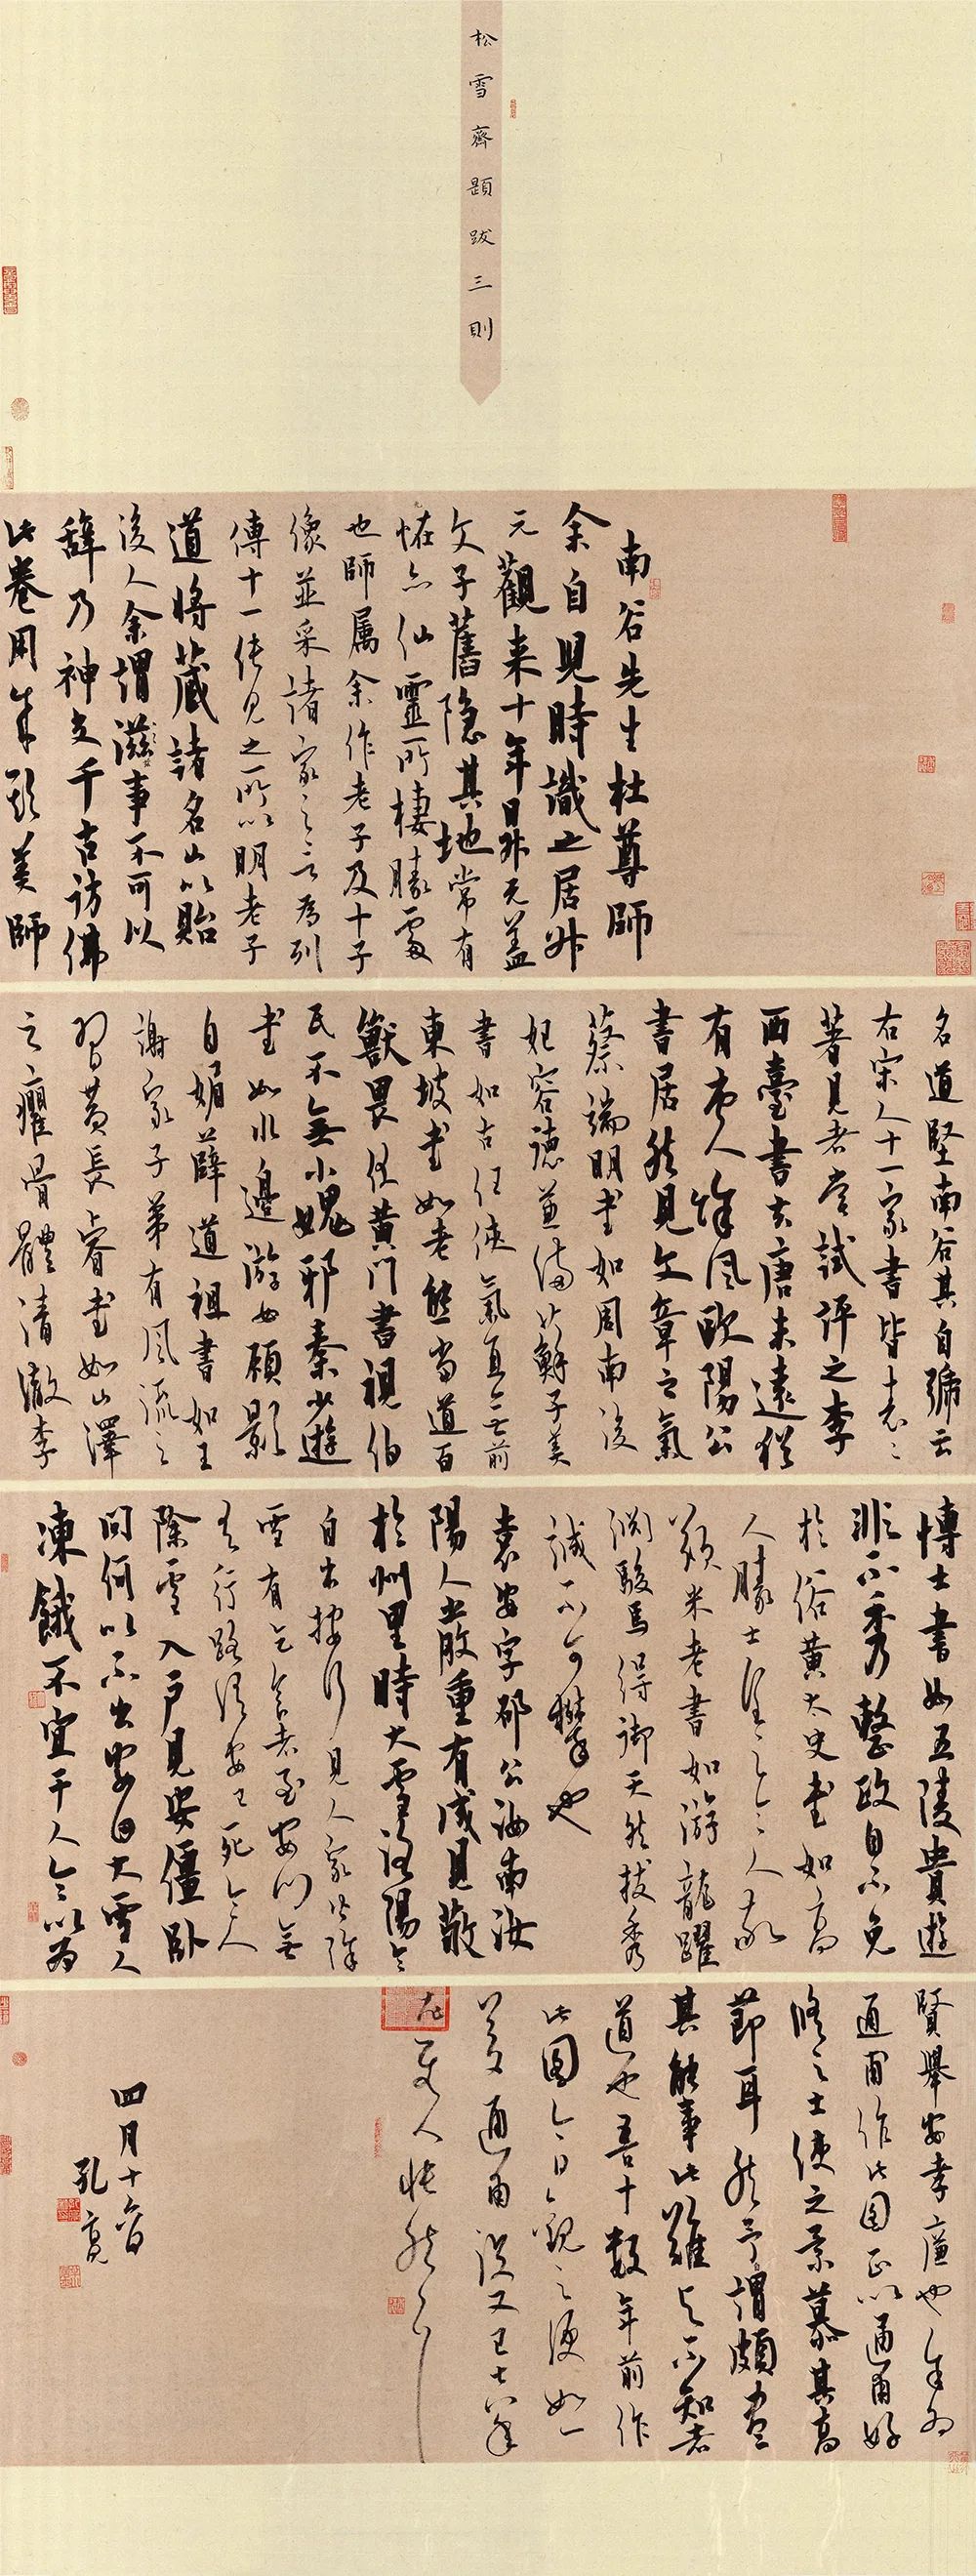 松雪齋題跋三則
南谷先生杜尊師
余自兒時識之居昇
元觀来十年昇元蓋
文子舊隐其地常有
恠亦仙靈所棲勝處
也師属余作老子及十子
像並采諸家之言為列
傳十一傳見之所以明老子
道將藏諸名山以貽
後人余謂滋事不可以
辞乃神交千古訪佛
此卷用成斯美師
名道堅南谷其自號云
右宋人十一家書皆表表
著見者嘗試評之李
西臺書去唐未遠猶
有唐人餘風歐陽公
書居然見文章之氣
蔡端明書如周南后
妃容德兼備蘇子美
書如古任俠氣直無前
東坡書如老熊當道百
獸畏伏黄門書視伯
氏不無小愧邪秦少游
書如水邊游女顧影
自媚薛道祖書如王
謝家子弟有風流之
習黄長睿書如山澤
之癯骨體清澈李
博士書如五陵貴遊
非不秀整政自不免
於俗黄太史書如高
人勝士望之令人敬
歎米老書如游龍躍
淵駿馬得御天然拔秀
誠不可攀也
袁安字邵公汝南汝
陽人嚴重有威見敬
於州里時大雪洛陽令
自出按行見人家皆除
雪有乞食者至安門無
有行路謂安已死令人
除雪入户見安僵卧
問何以不出安曰大雪人
凍餓不宜干人令以為
賢舉安孝廉也余為
通甫作此图正以通甫好
脩之士使之景慕其高
節耳然予謂頗盡
其能事此難與不知者
道也吾十數年前作
此图今日觀之便如一
夢通甫没又已七八年
在更人悵然
四月十六日
孔亮